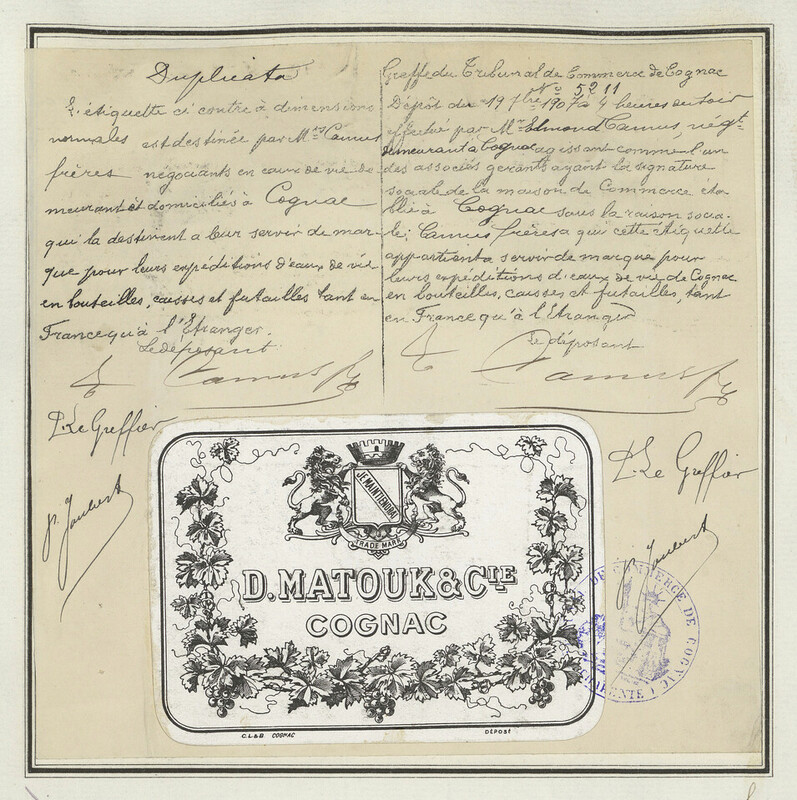 Duplicata
L'étiquette ci contre à dimensions
normales est destinée par Mrs Camus
frères négociants en eaux de vie de
meurant et domiciliés à Cognac
qui la destinent a leur servir de mar-
que pour leurs expéditions d'eaux de vie
en bouteilles, caisses et futailles tant en
France qu'à l'Etranger.
Le déposant
Camus
P. Le Greffier
P. Joubert
Greffe du Tribunal de Commerce de Cognac
No 5211
Dépôt du 19 7bre 1907 à 4 heures du soir
effectué par Mr Edmond Camus, négt
demeurant à Cognac agissant comme l'un
des associés gerants ayant la signature
sociale de la maison de Commerce éta-
blie à Cognac sous la raison socia-
le: Camus frères a qui cette étiquette
appartient a servir de marque pour
leurs expéditions d'eaux de vie de Cognac
en bouteilles, caisses et futailles, tant
en France qu'à l'Etranger
Le déposant
Camus
P. Le Greffier
P. Joubert
JE MAINTIENDRAI
TRADE MARK
D. MATOUK & CIE
COGNAC
C.L&B COGNAC
DÉPOSÉ
DE COMMERCE DE COGNAC
CHARENTE